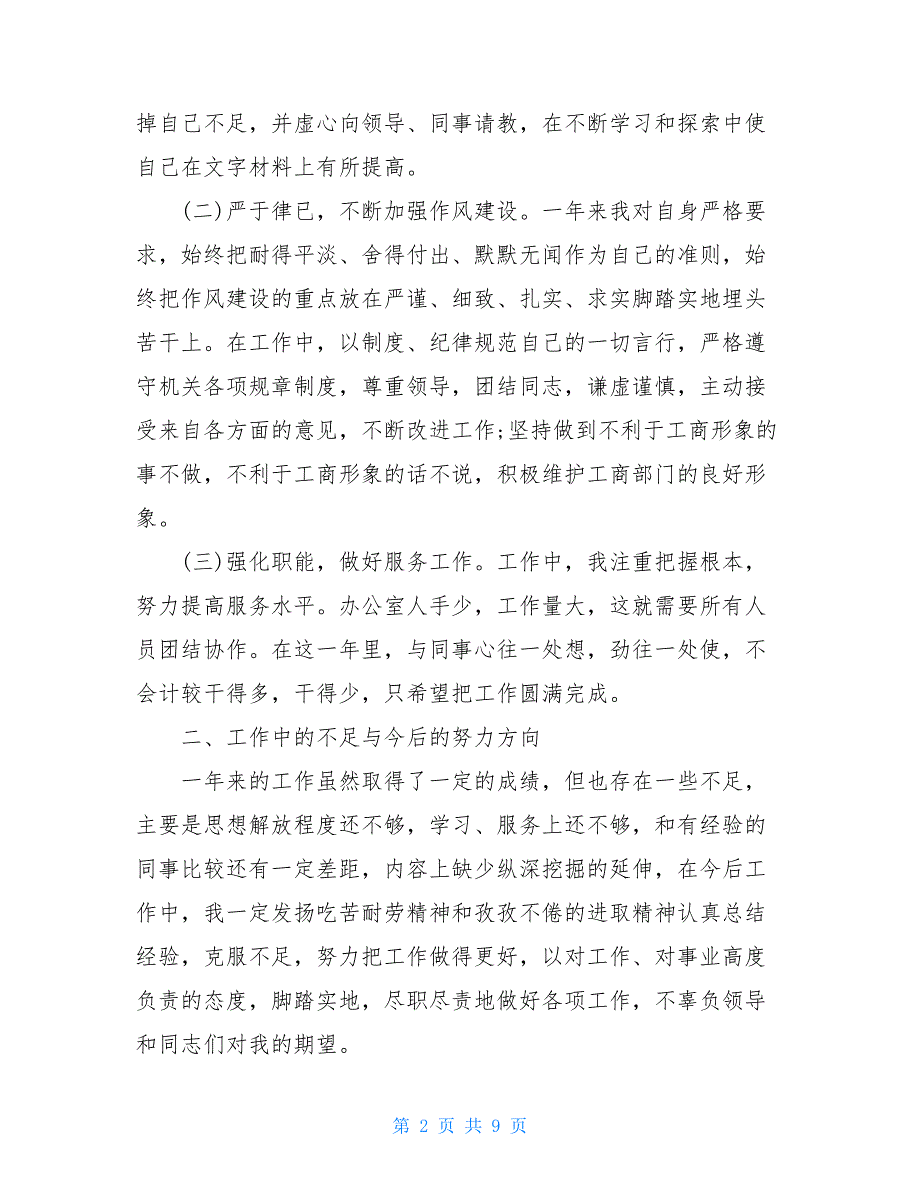 掉自己不足，并虚心向领导、同事请教，在不断学习和探索中使
自己在文字材料上有所提高。
(二)严于律己，不断加强作风建设。一年来我对自身严格要
求，始终把耐得平淡、舍得付出、默默无闻作为自己的准则，始
终把作风建设的重点放在严谨、细致、扎实、求实脚踏实地埋头
苦干上。在工作中，以制度、纪律规范自己的一切言行，严格遵
守机关各项规章制度，尊重领导，团结同志，谦虚谨慎，主动接
受来自各方面的意见，不断改进工作;坚持做到不利于工商形象的
事不做，不利于工商形象的话不说，积极维护工商部门的良好形
象。
(三)强化职能，做好服务工作。工作中，我注重把握根本，
努力提高服务水平。办公室人手少，工作量大，这就需要所有人
员团结协作。在这一年里，与同事心往一处想，劲往一处使，不
会计较干得多，干得少，只希望把工作圆满完成。
二、工作中的不足与今后的努力方向
一年来的工作虽然取得了一定的成绩，但也存在一些不足，
主要是思想解放程度还不够，学习、服务上还不够，和有经验的
同事比较还有一定差距，内容上缺少纵深挖掘的延伸，在今后工
作中，我一定发扬吃苦耐劳精神和孜孜不倦的进取精神认真总结
经验，克服不足，努力把工作做得更好，以对工作、对事业高度
负责的态度，脚踏实地，尽职尽责地做好各项工作，不辜负领导
和同志们对我的期望。
第 2 页 共 9 页